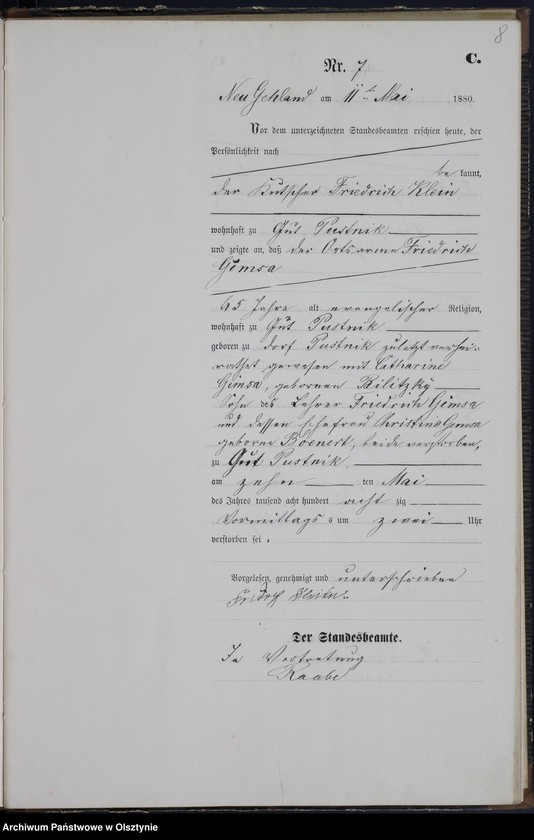 8
C.
Nr. 7
Neu Gehland am 11ten Mai 1880.
Vor dem unterzeichneten Standesbeamten erschien heute, der
Persönlichkeit nach
be kannt,
der Kutscher Friedrich Klein
wohnhaft zu Gut Pustnik
und zeigte an, daß der Ortsarme Friedrich
Gimsa
65 Jahre alt evangelischer Religion,
wohnhaft zu Gut Pustnik
geboren zu Dorf Pustnik zuletzt verhei-
rathet gewesen mit Catharine
Gimsa, geborenen Bilitzky
Sohn des Lehrer Friedrich Gimsa
und dessen Ehefrau Christine Gimsa
geborene Boenert, beide verstorben,
zu Gut Pustnik
am zehn ten Mai
des Jahres tausend acht hundert acht zig
Vormittags um zwei Uhr
verstorben sei.
Vorgelesen, genehmigt und unterschrieben
Der Standesbeamte.
In Vertretung
Raabe
Archiwum Państwowe w Olsztynie